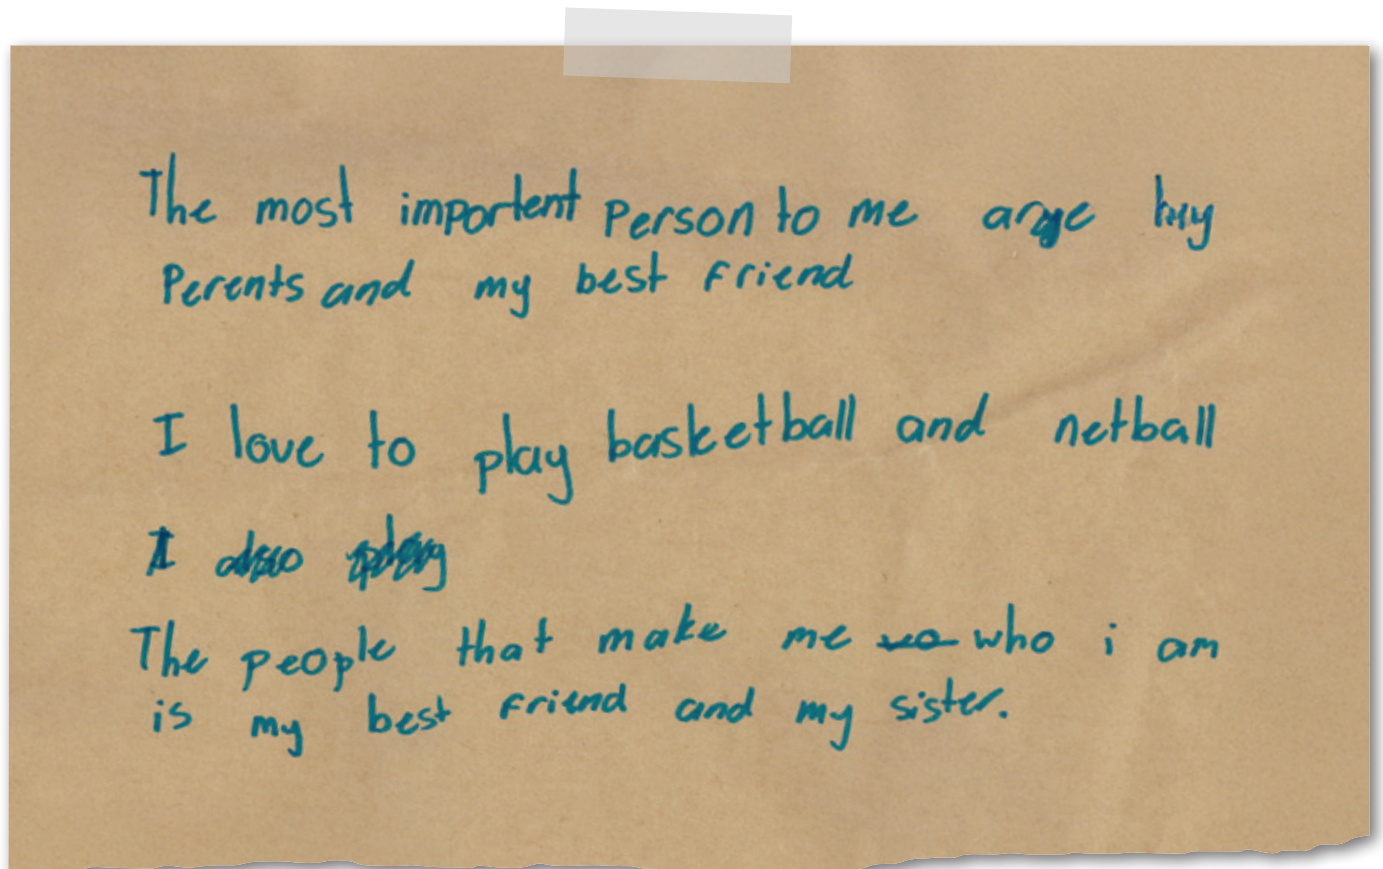 The most importent Person to me are my
Perents and my best friend
I love to play basketball and netball
I also play
The people that make me who i am
is my best friend and my sister.